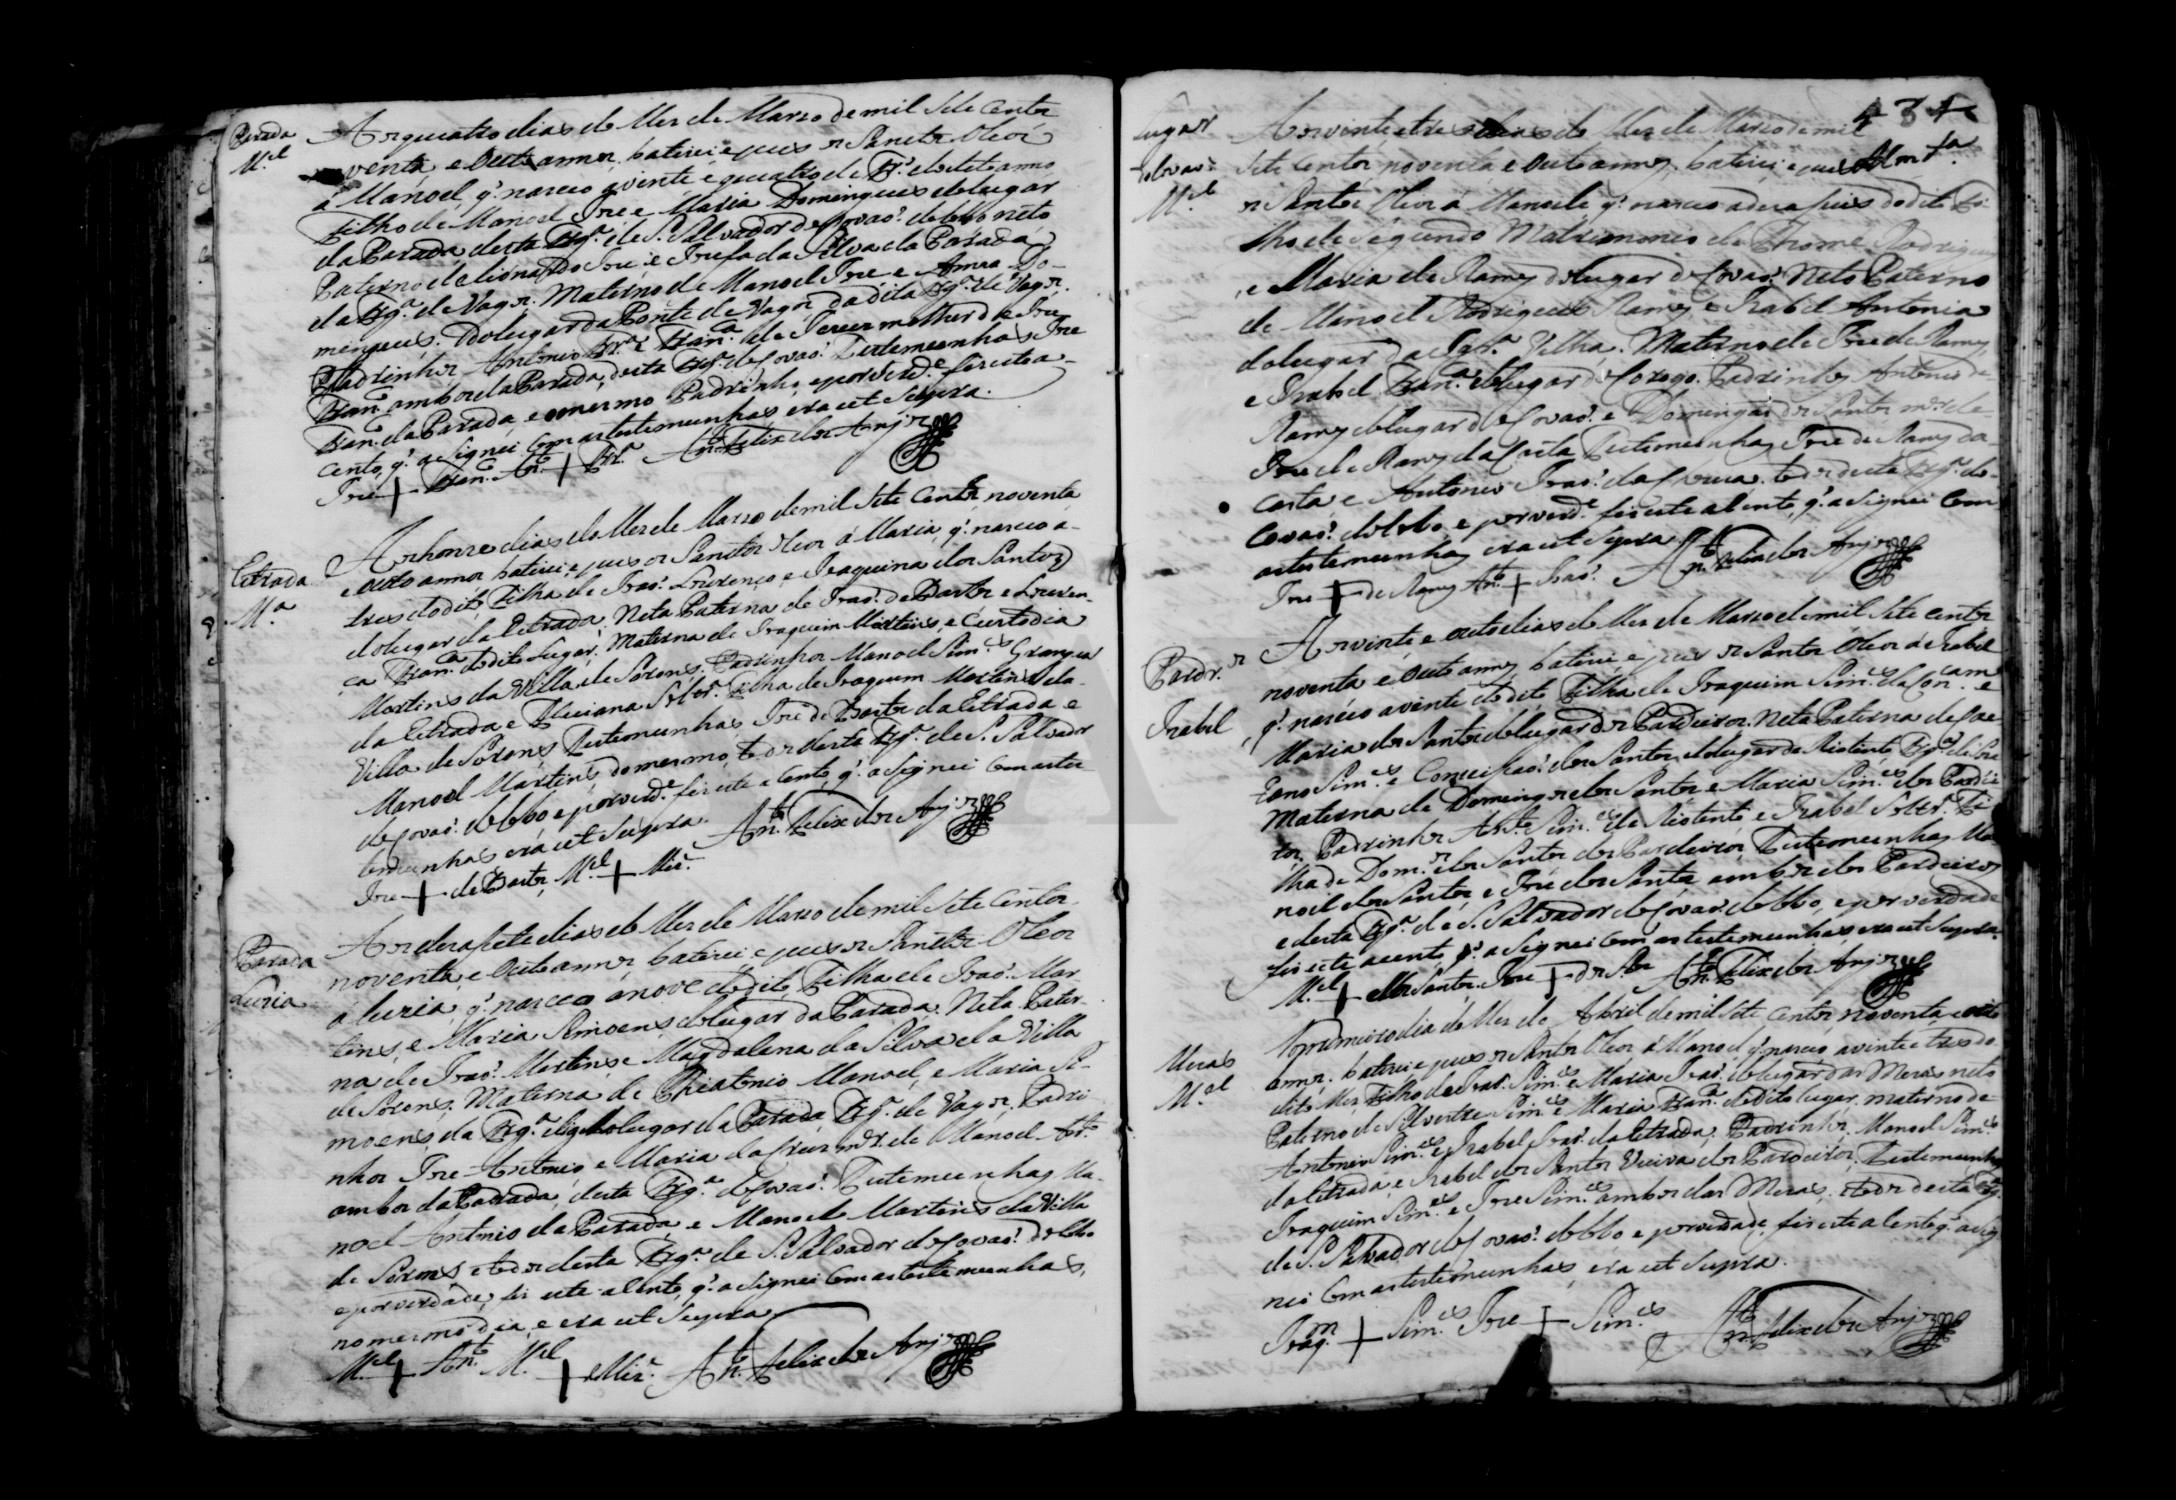 Parada
M.el
Aos quatro dias do Mes de Marso de mil Sete Centos
noventa e Outo annos, batizei e pus os Sanctos Oleos
a Manoel, q. nasceo a vinte e quatro de do dito anno
Filho de Manoel Joze e Maria Domingues do lugar
da Parada desta Frg.ª de S. Salvador de Covaõ do Lobo neto
Paterno de Lionardo Joze, e Jozefa da Silva da Parada
da Frg.ª de Vagos. Materno de Manoel Joze e Anna Do-
mingues. Do lugar da Ponte de Vagos da dita Frg.ª de Vagos.
Padrinhos Antonio e Fran.ca de Jezus molher de Joze
Fran.co ambos da Parada, desta Frg.ª de Covaõ. Testemunhas Joze
Fran.co da Parada e o mesmo Padrinho, e por verd.e fis este a-
cento, q. asignei com as testemunhas, era ut Supra.
Joze + Fran.co An.to + An.to Felix dos Anjos
Estrada
M.ª
Aos honze dias do Mes de Marso de mil Sete Centos noventa
e outo annos, batizei, e pus os Sanctos Oleos á Maria, q. nasceo a
tres do dito, Filha de Joaõ Lourenço e Joaquina dos Santos
do lugar da Estrada, Neta Paterna de Joaõ de Bastos e Louren-
ça Fran.ca do dito lugar, Materna de Joaquim Martins, e Custodia
Martins da Villa de Sorens, Padrinhos Manoel Sim.es Grangea
da Estrada e Luciana Soltr.ª Filha de Joaquim Martins da
Villa de Sorens, Testemunhas Joze de Bastos da Estrada e
Manoel Martins, do mesmo, todos desta Frg.ª de S. Salvador
de Covaõ do Lobo e por verd.e fis este acento, q. asignei com as tes-
temunhas era ut Supra. An.to Felix dos Anjos
Joze + de Bastos, M.el + Miz.
Parada
Luzia
Aos dezasete dias do Mes de Marso de mil Sete Centos
noventa, e Outo annos, batizei, e pus os Sanctos Oleos
á Luzia, q. nasceo a nove do dito, Filha de Joaõ Mar-
tins, e Maria Simoens do lugar da Parada. Neta Pater-
na de Joaõ Martins e Magdalena da Silva da Villa
de Sorens. Materna de Theatonio Manoel, e Maria Si-
moens, da Frg.ª digo do lugar da Parada, Frg.ª de Vagos. Padri-
nhos Joze Antonio, e Maria da Cruz m.er de Manoel An.to
ambos da Parada, desta Frg.ª de Covaõ. Testemunhas Ma-
noel Antonio da Parada, e Manoel Martins da Villa
de Sorens, e todos desta Frg.ª de S. Salvador de Covaõ do Lobo
e por verdade, fis este acento, q. asignei com as testemunhas,
no mesmo dia, e era ut Supra
M.el + An.to M.el + Miz. An.to Felix dos Anjos
434
Lugar
de Covaõ
M.el
Aos vinte e tres dias do Mes de Marso de mil
Sete Centos noventa e Outo annos, batizei, e pus
os Santos Oleos á Manoel, q. nasceo a dezaseis do dito Fi-
lho de segundo Matrimonio de Thome Rodrigues
e Maria de Ramos do lugar de Covaõ. Neto Paterno
de Manoel Rodrigues Ramos e Izabel Antonia
do lugar da Igr.ª Velha. Materno de Joze de Ramos,
e Izabel Fran.ca do lugar do Corogo. Padrinhos Antonio de
Ramos do lugar de Covaõ. e Domingas dos Santos m.er de
Joze de Ramos da Costa Testemunhas Joze de Ramos da
Costa, e Antonio Joaõ da todos desta Frg.ª de
Covaõ do Lobo, e por verd.e fis este acento, q. asignei com
as testemunhas era ut Supra
Joze + de Ramos An.to + Joaõ. An.to Felix dos Anjos
Pardr.os
Izabel
Aos vinte e outo dias do Mes de Marso de mil Sete Centos
noventa e outo annos batizei, e pus os Santos Oleos á Izabel
q. nasceo a vinte do dito, Filha de Joaquim Sim.es da Con.cam e
Maria dos Santos do lugar dos Pardeiros. Neta Paterna de Cae-
tano Sim.es e Conceisaõ dos Santos, do lugar da Ristente, Frg.ª
Materna de Domingos dos Santos e Maria Sim.es dos Pardei-
ros, Padrinhos An.to Sim.es de Ristente e Izabel Soltr.ª Fi-
lha de Dom.os dos Santos dos Pardeiros, Testemunhas Ma-
noel dos Santos, e Joze dos Santos ambos dos Pardeiros
e desta Frg.ª de S. Salvador de Covaõ do Lobo, e por verdade
fis este acento, q. asignei com as testemunhas, era ut Supra.
M.el + dos Santos. Joze + dos An.to Felix dos Anjos
Mesas
M.el
No primeiro dia do Mes de Abril de mil Sete Centos noventa e outo
annos. batizei e pus os Santos Oleos, á Manoel q. nasceo a vinte e tres do
dito Mes, Filho de Joaõ Sim.es e Maria Joaõ do lugar das Mesas neto
Paterno de Silvestre Sim.es e Maria Fran.ca do dito lugar. materno de
Antonio Sim.es e Izabel Joaõ da Estrada. Padrinhos, Manoel Sim.es
da Estrada, e Izabel dos Santos Viuva dos Pardeiros, Testemunhas
Joaquim Sim.es e Joze Sim.es ambos das Mesas, e todos desta Frg.ª
de S. Salvador de Covaõ do Lobo e por verdade, fis este acento q. asig-
nei com as testemunhas, era ut Supra.
Joaq.m + Sim.es Joze + Sim.es An.to Felix dos Anjos